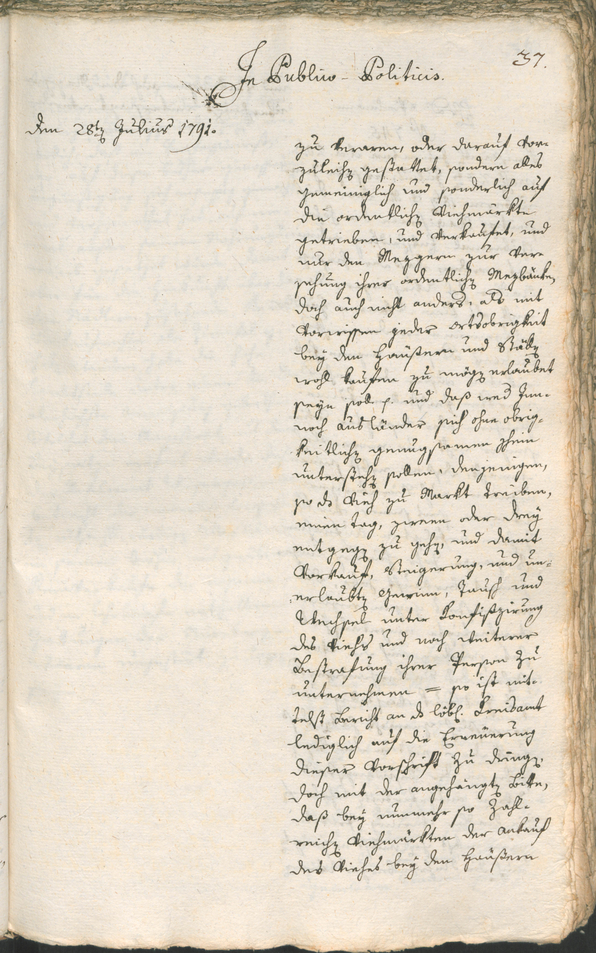 37.
In Publico-Politicis.
Den 28ten Julius 1791.
zu veraren, oder darauf vor-
zuleihen gestattet, sondern alles
gemeiniglich und sonderlich auf
die ordentlichen Viehmärkte
getrieben, und verkaufet, und
nur den Mezgern zur Ver-
sehung ihrer ordentlichen Mezbänken
doch auch nicht anders, als mit
Vorwissen jeder Ortsobrigkeit
bey den Häußern und Ställen
wohl kaufen zu mögen erlaubet
seyn soll p. und daß wed Inn-
noch Ausländer sich ohne obrig-
keitlichen genugsamen schein
unterstehen sollen, denjenigen,
so ds Vieh zu Markt treiben,
einen tag, zween oder drey
entgegen zu gehen, und damit
Vorkauf, Steigerung, und un-
erlaubten Gewinn, Tausch und
Wechsel unter Confiszirung
des Viehs und noch weiterer
Bestrafung ihrer Person zu
unternehmen = so ist mit-
telst Bericht an ds löbl. Kreisamt
lediglich auf die Erneuerung
dieser Vorschrift zu dringen,
doch mit der angehängten Bitte,
daß bey nunmehr so zahl-
reichen Viehmärkten der ankauf
des Viehes bey den Häußern